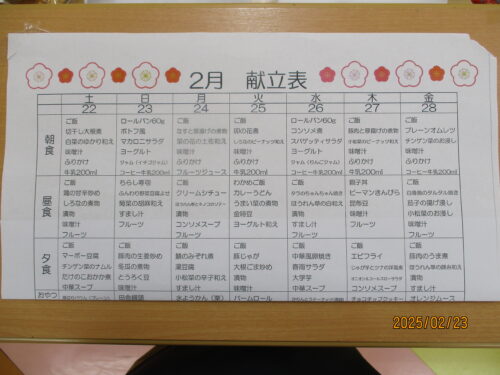 2月 献立表
土 日 月 火 水 木 金
22 23 24 25 26 27 28
朝食
ご飯 ロールパン60g ご飯 ご飯 ロールパン60g ご飯 ご飯
切干し大根煮 ポトフ風 なすと厚揚げの煮物 卯の花煮 コンソメ煮 豚肉と厚揚げの煮物 プレーンオムレツ
白菜のゆかり和え マカロニサラダ 菜の花の土佐和え しろなのピーナッツ和え スパゲッティサラダ 小松菜のピーナッツ和え チンゲン菜のお浸し
味噌汁 ヨーグルト 味噌汁 味噌汁 ヨーグルト 味噌汁 味噌汁
ふりかけ ジャム(イチゴジャム) ふりかけ ふりかけ ジャム(りんごジャム) ふりかけ ふりかけ
牛乳200ml コーヒー牛乳200ml フルーツジュース 牛乳200ml コーヒー牛乳200ml 牛乳200ml 牛乳200ml
昼食
ご飯 ちらし寿司 ご飯 わかめご飯 ご飯 ご飯
鶏の甘辛炒め クリームシチュー カレーうどん タラのちゃんちゃん焼き ピーマンきんぴら 白身魚のタルタル焼き
しろなの煮物 菊菜の胡麻和え うまい菜の煮物 ほうれん草の白和え 昆布豆 茄子の揚げ浸し
漬物 すまし汁 漬物 金時豆 漬物 味噌汁 小松菜のお浸し
すまし汁 フルーツ コンソメスープ ヨーグルト和え すまし汁 フルーツ 漬物
フルーツ フルーツ フルーツ 味噌汁
夕食
ご飯 ご飯 ご飯 ご飯 ご飯 ご飯 ご飯
マーボー豆腐 豚肉の生姜炒め 鯖のみぞれ煮 豚じゃが 中華風卵焼き エビフライ 豚肉のうま煮
チンゲン菜のナムル 冬瓜の煮物 湯豆腐 大根ごま炒め 春雨サラダ じゃが芋とツナの洋風煮 ほうれん草の胡麻和え
たけのこおかか煮 とろろ豆 小松菜の辛子和え 味噌汁 大学芋 漬物
中華スープ 味噌汁 すまし汁 漬物 味噌汁 コンソメスープ すまし汁
おやつ 田舎饅頭 水ようかん(栗) バームロール チョコチップクッキー オレンジムース
2025/02/23